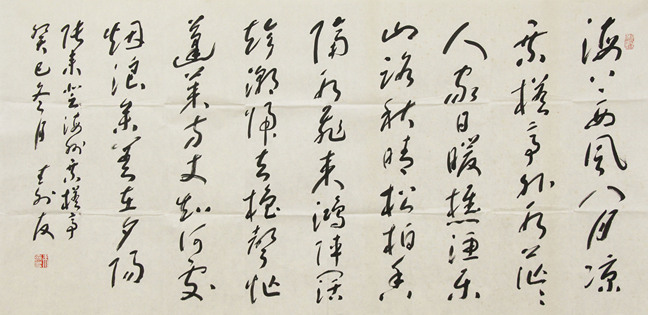 海上西风八月凉
乘槎亭外水茫茫
人家日暖樵渔乐
山路秋晴松柏香
隔水飛来鴻阵闊
趁潮歸去櫓聲忙
蓬莱方丈知何處
烟浪参差在夕陽
張耒登海州乘槎亭
癸巳冬月